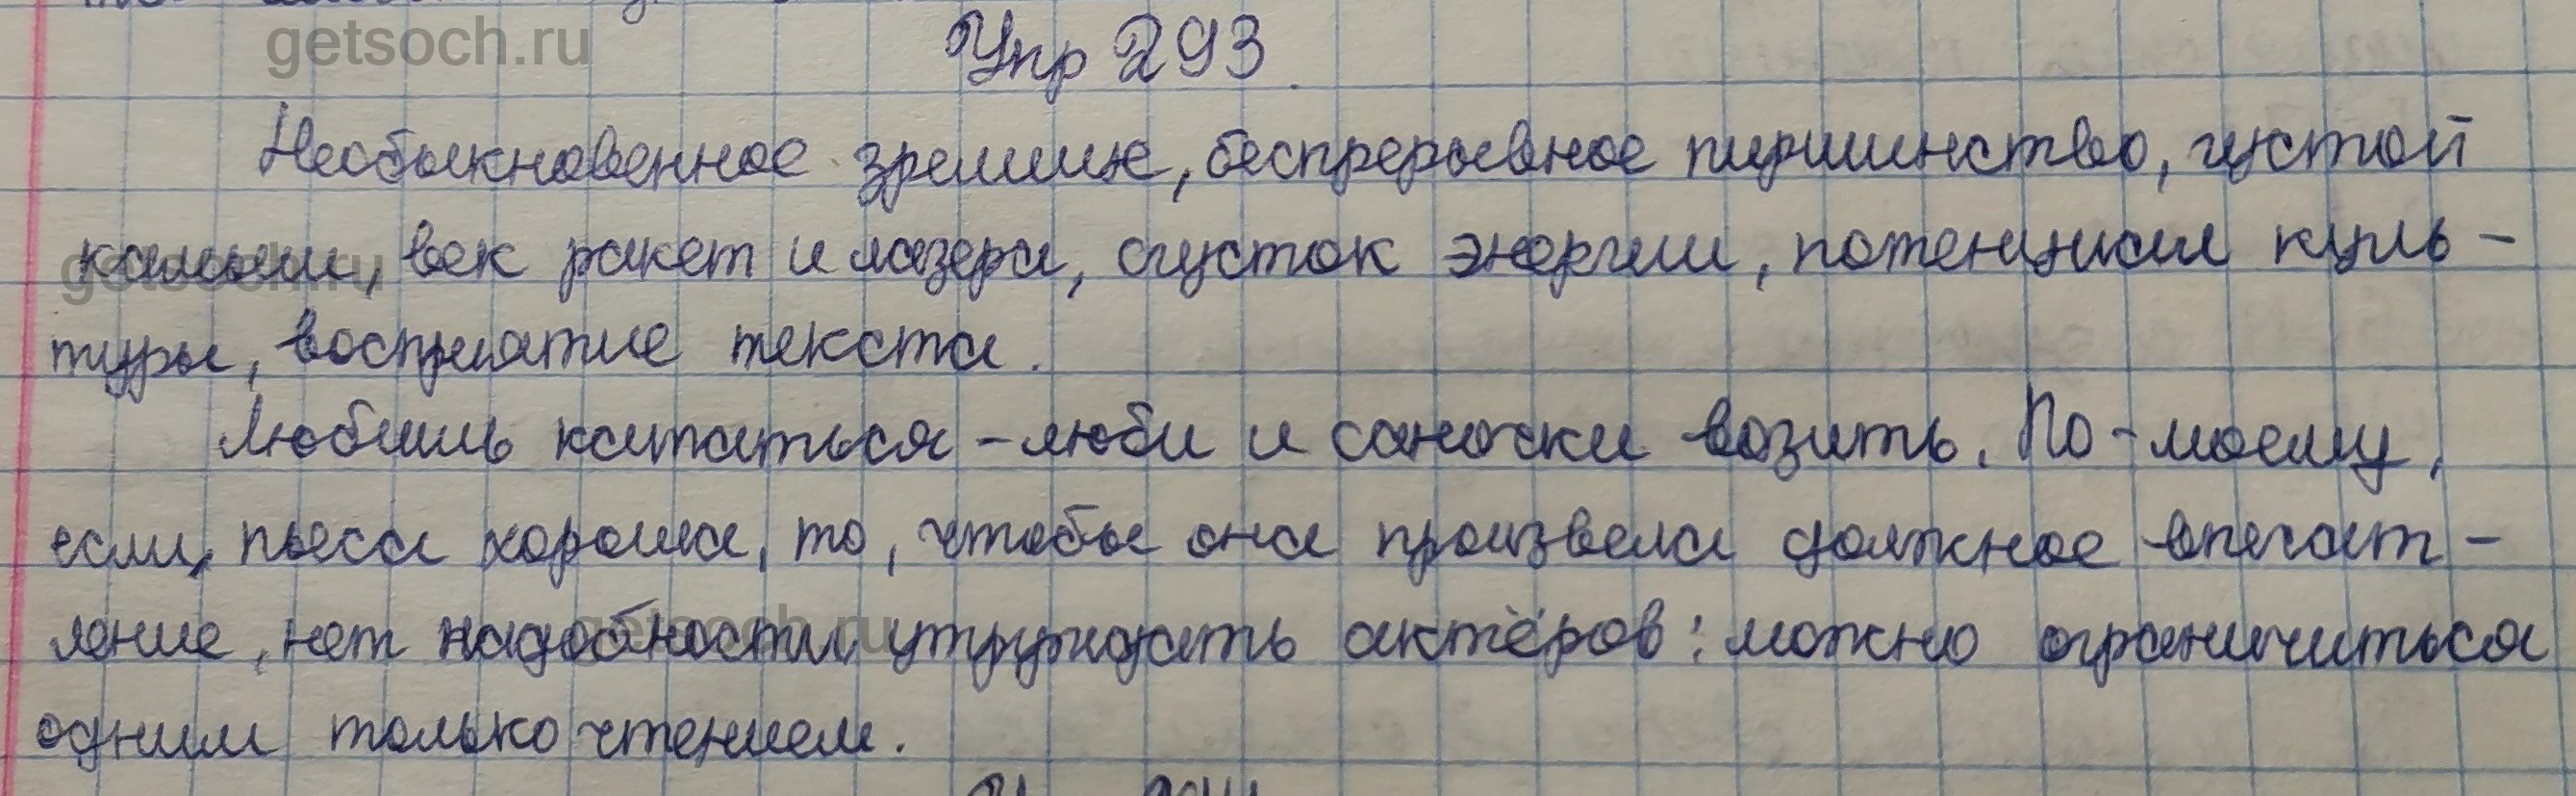 getsoch.ru
Упр 293.
Необыкновенное зрелище, беспрерывное пиршинство, густой
камыш, век ракет и лазера, сгусток энергии, потенциал куль-
getsoch.ru
туры, восприятие текста.
Любишь кататься - люби и саночки возить. По-моему,
если, пьеса хороша, то, чтобы она произвела должное впечат-
ление, нет надобности утруждать актёров: можно ограничиться
getsoch.ru
одним только чтением.